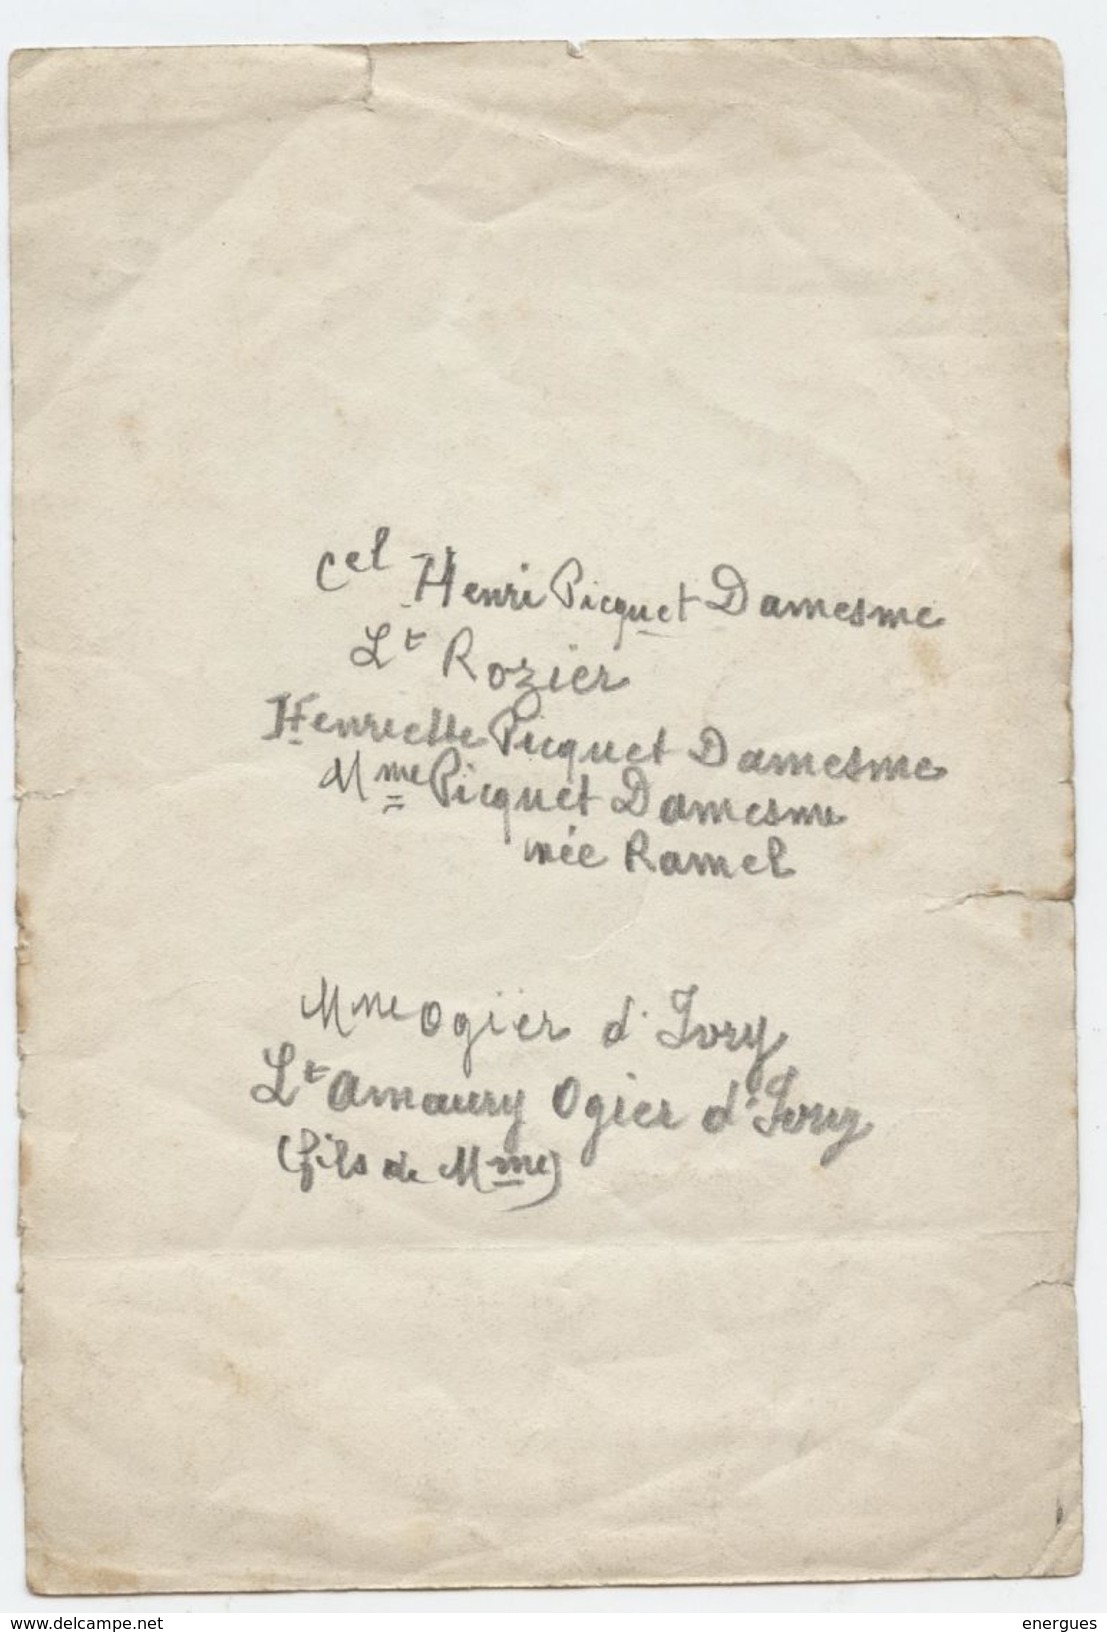 Cel Henri Picquet Damesme
Lt Rozier
Henriette Picquet Damesme
Mme Picquet Damesme
née Ramel
Mme Ogier d'Ivry
Lt Amaury Ogier d'Ivry
(fils de Mme)
delcampe.net
energues